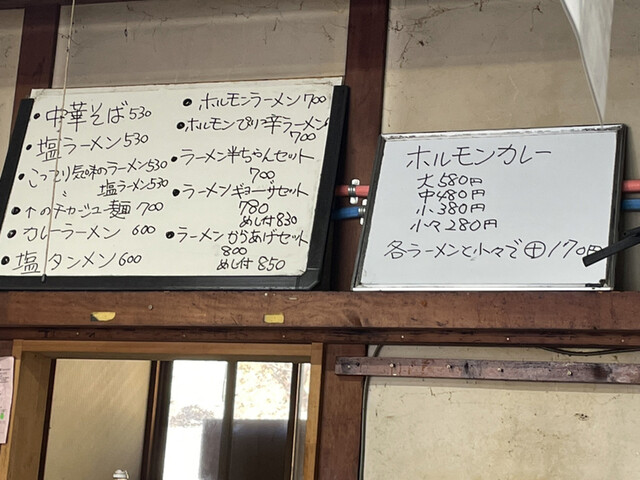 中華そば530
塩ラーメン530
こってり気味のラーメン530
〃 塩ラーメン530
↑のチャシュー麺 700
カレーラーメン 600
塩タンメン600
ホルモンラーメン700
ホルモンぴり辛ラーメン
700
ラーメン半ちゃんセット
700
ラーメンギョーザセット
780
めし付830
ラーメンからあげセット
800
めし付850
ホルモンカレー
大580円
中480円
小380円
小々280円
各ラーメンと小々で㊉170円